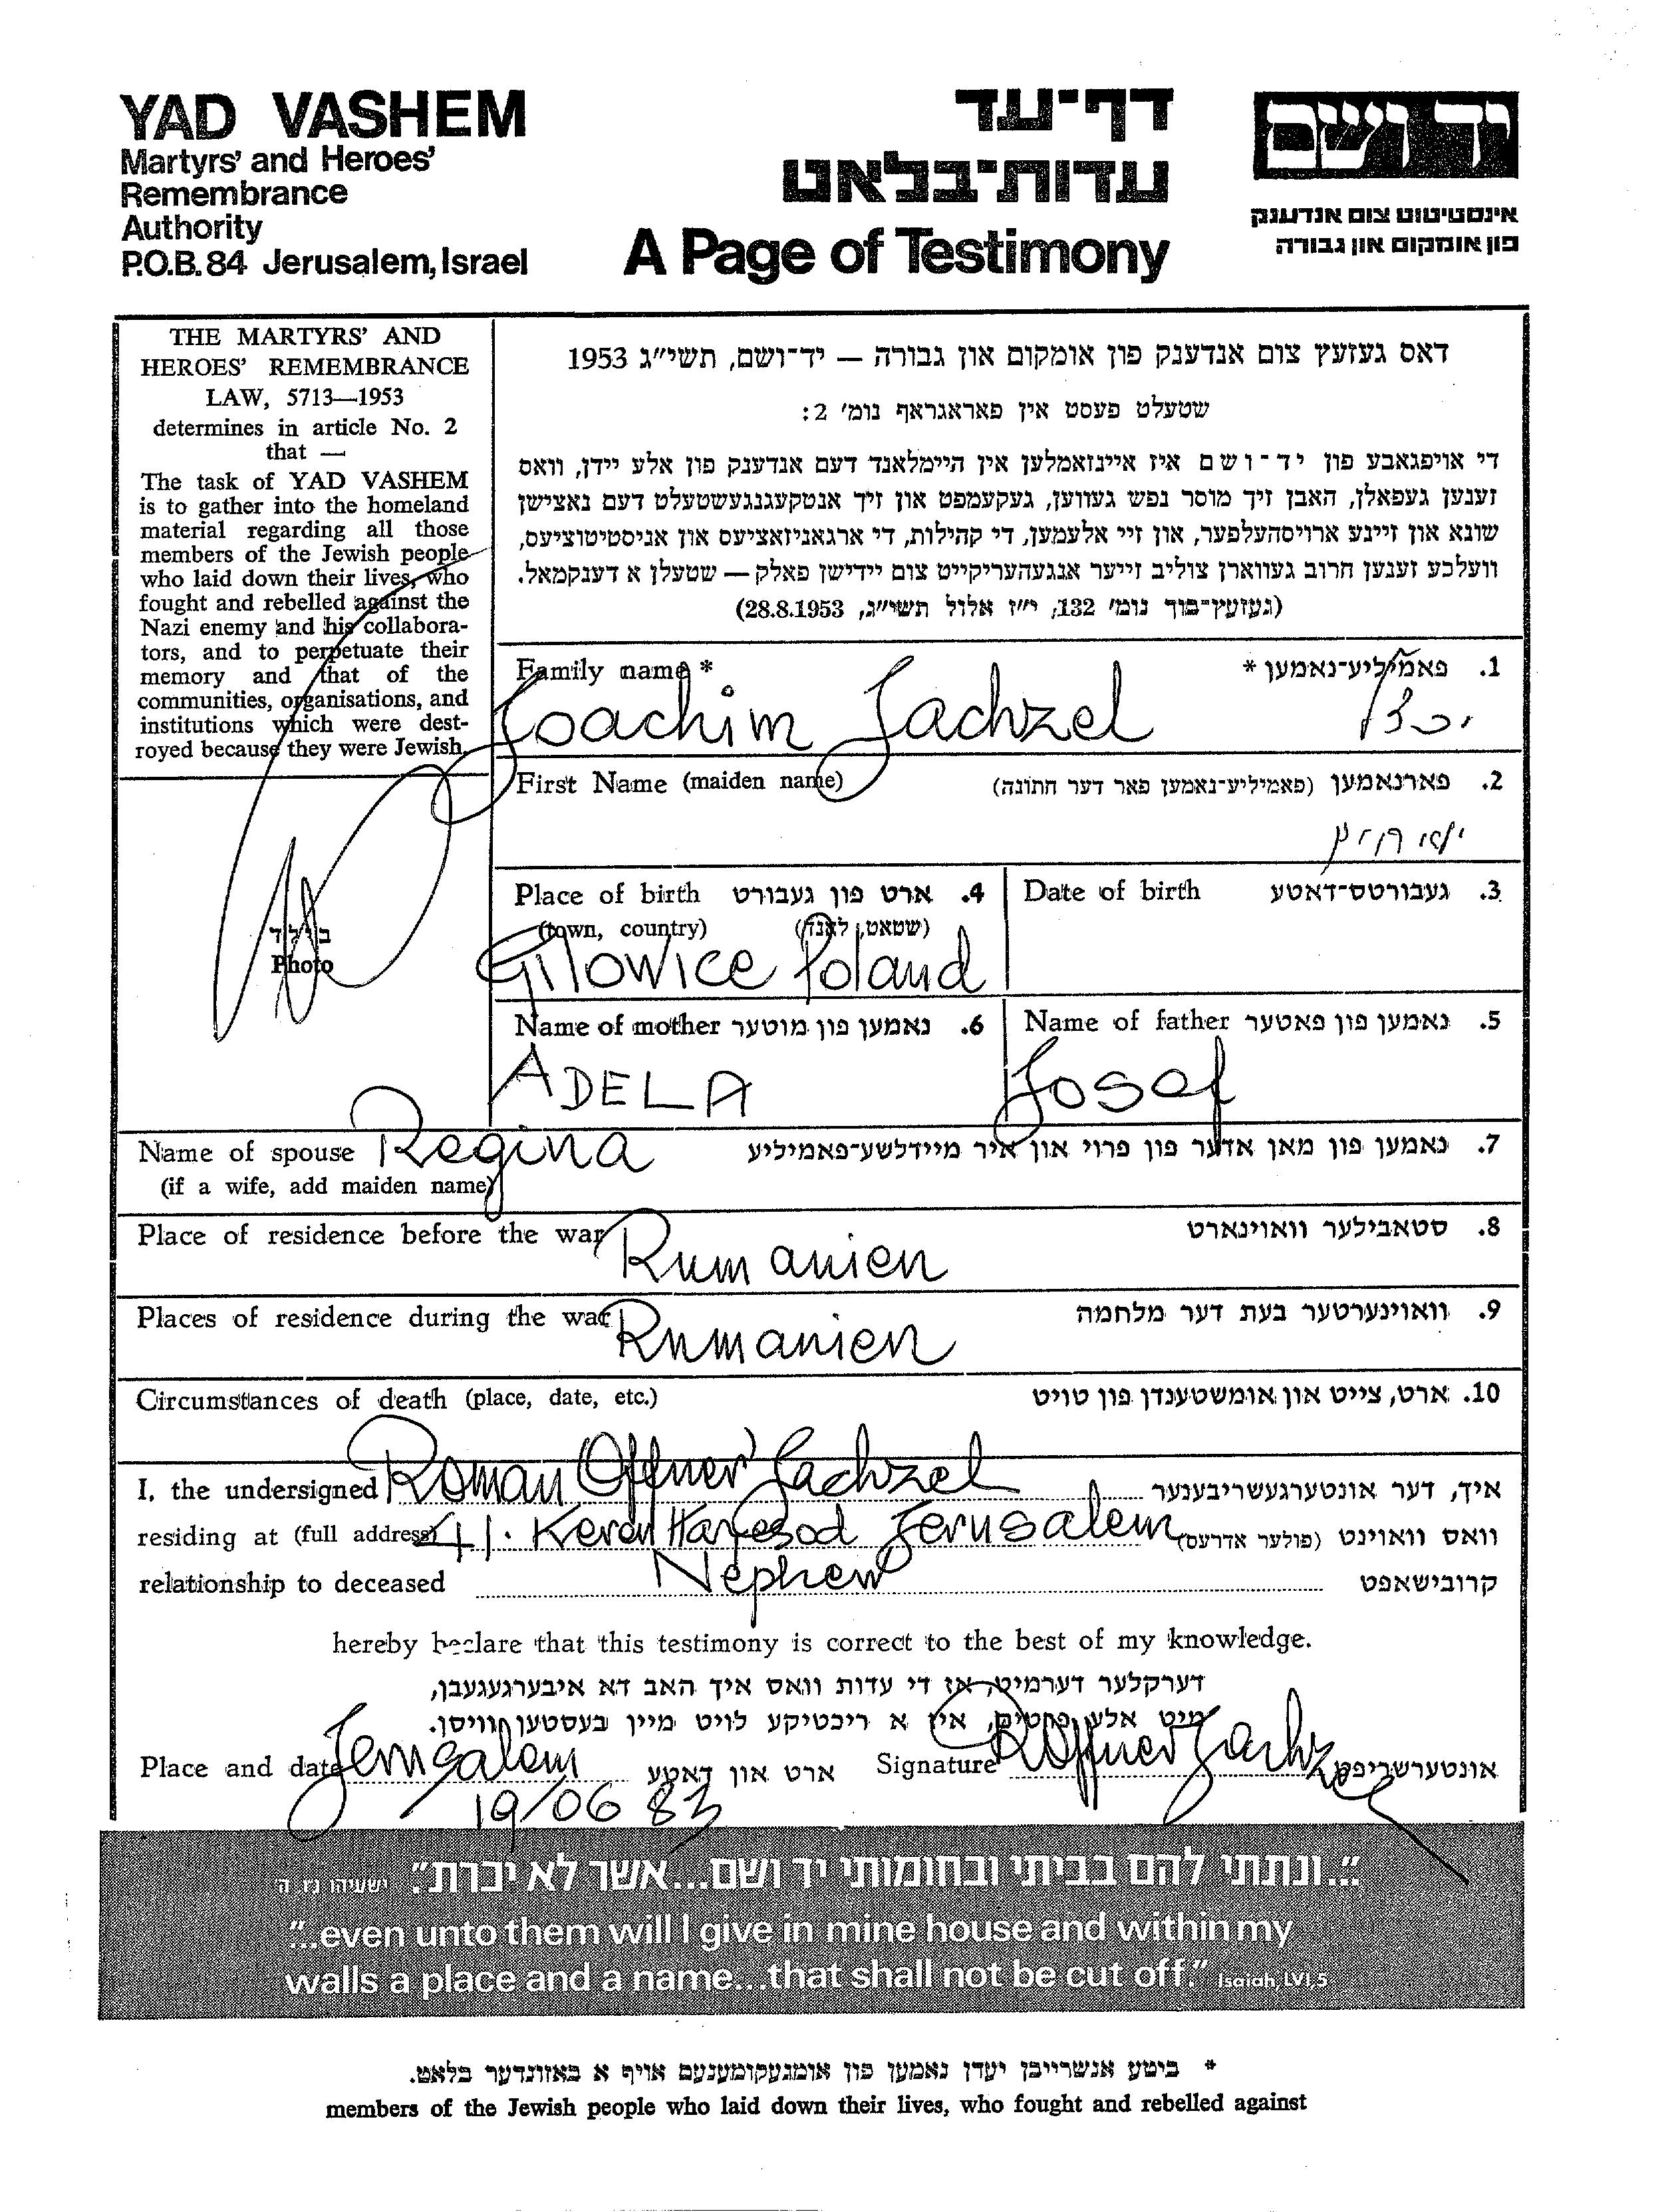 YAD VASHEM
Martyrs' and Heroes'
Remembrance
Authority
P.O.B. 84 Jerusalem, Israel
דף־עד
עדות־בלאט
A Page of Testimony
יד ושם
אינסטיטוט צום אנדענק
פון אומקום און גבורה
THE MARTYRS' AND
HEROES' REMEMBRANCE
LAW, 5713—1953
determines in article No. 2
that —
The task of YAD VASHEM
is to gather into the homeland
material regarding all those
members of the Jewish people
who laid down their lives, who
fought and rebelled against the
Nazi enemy and his collabora-
tors, and to perpetuate their
memory and that of the
communities, organisations, and
institutions which were dest-
royed because they were Jewish.
דאס געזעץ צום אנדענק פון אומקום און גבורה — יד־ושם, תשי״ג 1953
שטעלט פעסט אין פאראגראף נומ׳ 2:
די אויפגאבע פון יד־ושם איז איינזאמלען אין היימלאנד דעם אנדענק פון אלע יידן, וואס
זענען געפאלן, האבן זיך מוסר נפש געווען, געקעמפט און זיך אנטקעגנגעשטעלט דעם נאצישן
שונא און זיינע ארויסהעלפער, און זיי אלעמען, די קהילות, די ארגאניזאציעס און אניסטיטוציעס,
וועלכע זענען חרוב געווארן צוליב זייער אנגעהעריקייט צום יידישן פאלק — שטעלן א דענקמאל.
(געזעץ־בוך נומ׳ 132, י״ז אלול תשי״ג, 28.8.1953)
Family name * פאמיליע־נאמען * .1
Joachim Jachzel
First Name (maiden name) פארנאמען (פאמיליע־נאמען פאר דער חתונה) .2
Place of birth ארט פון געבורט .4
(town, country) (שטאט, לאנד)
Gilowice Poland
Date of birth געבורטס־דאטע .3
Name of mother נאמען פון מוטער .6
ADELA
Name of father נאמען פון פאטער .5
Josef
Photo
בילד
Name of spouse Regina נאמען פון מאן אדער פון פרוי און איר מיידלשע־פאמיליע .7
(if a wife, add maiden name)
Place of residence before the war Rumanien סטאבילער וואוינארט .8
Places of residence during the war Rumanien וואוינערטער בעת דער מלחמה .9
Circumstances of death (place, date, etc.) ארט, צייט און אומשטענדן פון טויט .10
I, the undersigned Roman (Offner) Jachzel איך, דער אונטערגעשריבענער
residing at (full address) 41. Keren Hayesod Jerusalem וואס וואוינט (פולער אדרעס)
relationship to deceased Nephew קרובישאפט
hereby declare that this testimony is correct to the best of my knowledge.
דערקלער דערמיט, אז די עדות וואס איך האב דא איבערגעגעבן,
מיט אלע פרטים, איז א ריכטיקע לויט מיין בעסטען וויסן.
Place and date Jerusalem ארט און דאטע Signature ROffner Jachzel אונטערשריפט
19/06 83
"...ונתתי להם בביתי ובחומותי יד ושם...אשר לא יכרת" ישעיהו נ״ו, ה׳
"...even unto them will I give in mine house and within my
walls a place and a name...that shall not be cut off." Isaiah, LVI, 5
* ביטע אנשרייבן יעדן נאמען פון אומגעקומענעם אויף א באזונדער בלאט.
members of the Jewish people who laid down their lives, who fought and rebelled against